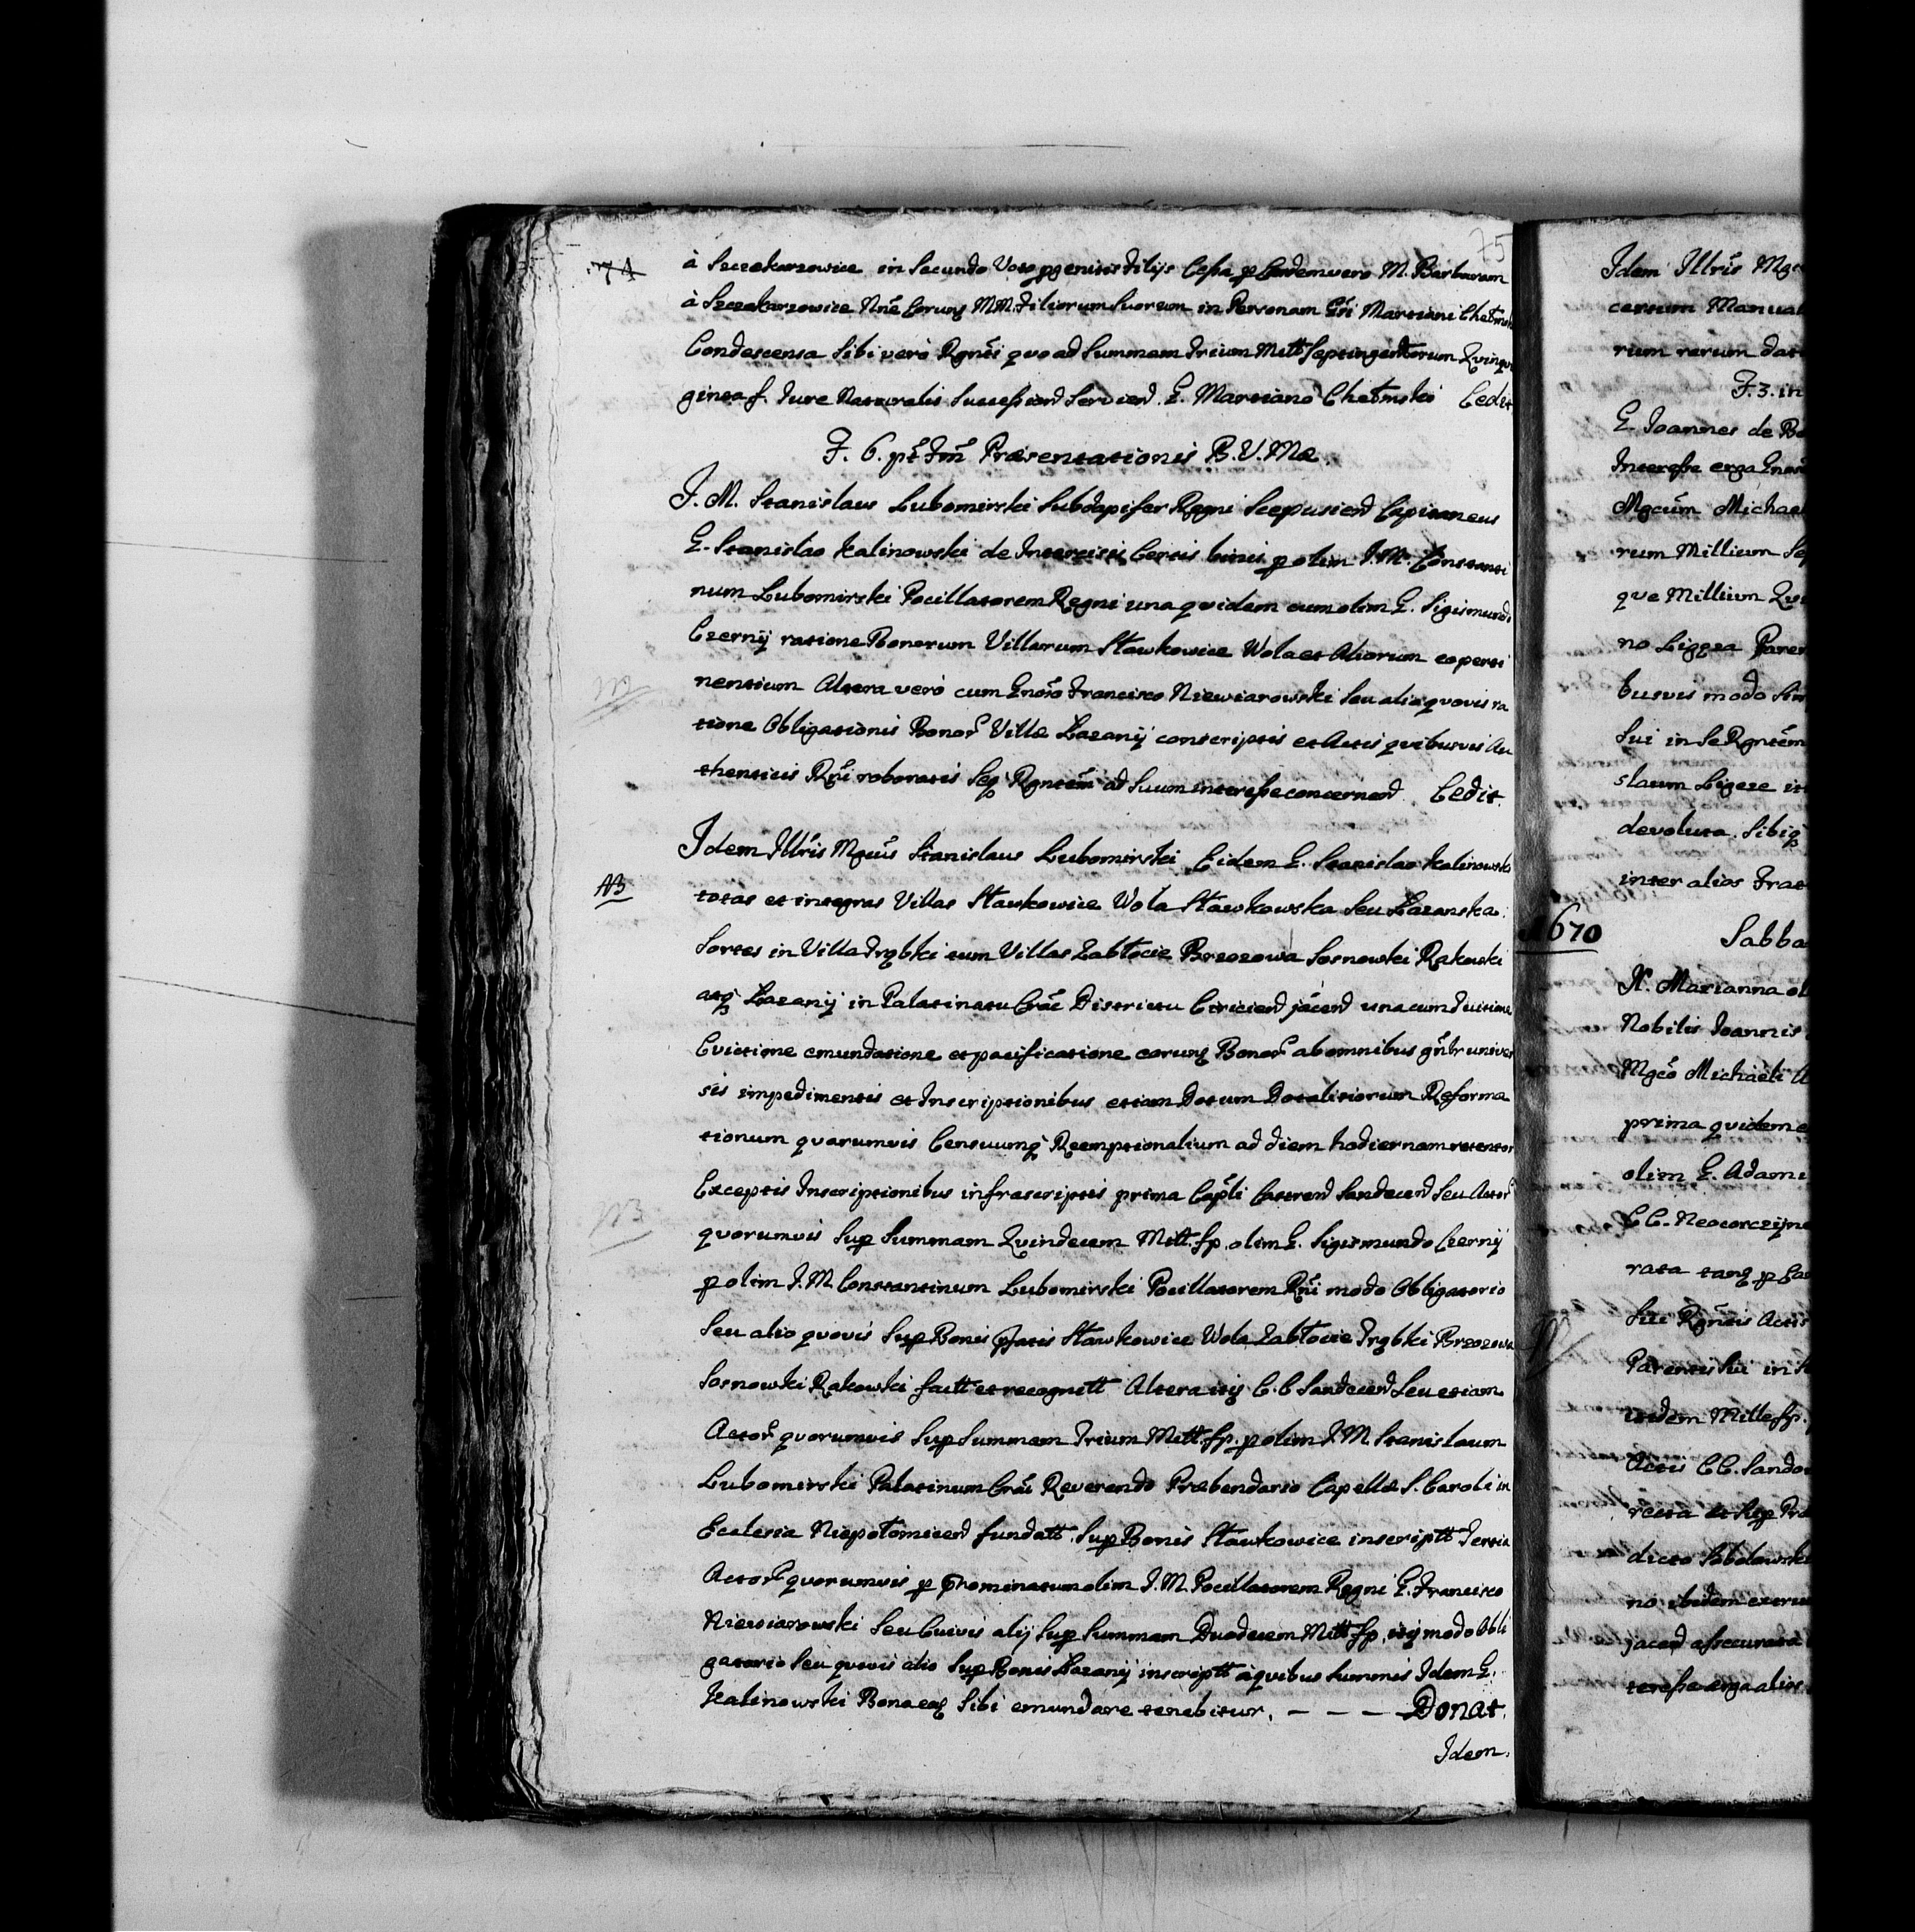 74
75
à Szczekarzowice in Secundo Voto pgenitis Filijs Cessa p Eandem vero M. Barbaram
à Szczekarzowice Nne Eorunq MM. Filiorum Suorum in Personam Gsi Martiani Chełmsk
Condescensa Sibi verò Rgnti quo ad Summam Trium Mill Septingentorum Quinqua
ginta f. Jure Naturalis Success Serviend. G. Martiano Chełmski Cedit
F. 6. pt Fm Præsentationis B. V. Mæ.
J. M. Stanislaus Lubomirski Subdapifer Regni Scepusien Capitaneus
G. Stanislao Kalinowski de Intercisis Certis binis p olim J. M. Constanti
num Lubomirski Pocillatorem Regni una quidem cum olim G. Sigismundo
Czernij ratione Bonorum Villarum Sławkowice Wola et Aliorum eo perti
nentium Altera verò cum Gnoso Francisco Niewiarowski Seu alia quovis ra
tione Obligationis Bonor Villæ Łazanij conscriptis et Actis quibusvis Au
thenticis Rni roboratis Seq Rgntem ad Suum interesse concernend. Cedit.
Idem Illris Mgcus Stanislaus Lubomirski Eidem G. Stanislao Kalinowski
NB
totas et integras Villas Sławkowice Wola Sławkowska Seu Łazanska.
Sortes in Villa Trąbki tum Villas Zabłocie Brzozowa Sosnowki Rakowki
atq Łazanij in Palatinatu Crac Districtu Ciricien jacen una cum Tuitione
Evictione emundatione et pacificatione earunq Bonor ab omnibus gnlbr univer
sis impedimentis et Inscriptionibus etiam Dotum Dotalitiorum Reforma
tionum quorumvis Censuumq Reemptionalium ad diem hodiernam retentor
Exceptis Inscriptionibus infrascriptis prima Capli Castren Sandecen Seu Actor
NB
quorumvis Sup Summam Quindecem Mill. fp. olim G. Sigismundo Czernij
p olim J. M. Constantinum Lubomirski Pocillatorem Rni modo Obligatorio
Seu alio quovis Sup Bonis pfatis Sławkowice Wola Zabłocie Trąbki Brzozowa
Sosnowki Rakowki fact et recognitt Altera itq C. C Sandecen Seu etiam
Actor quorumvis Sup Summam Trium Mill. fp. p olim J. M. Stanislaum
Lubomirski Palatinum Crac Reverendo Præbendario Capellæ S. Caroli in
Ecclesia Niepołomicen fundatt Sup Bonis Sławkowice inscriptt Tertia
Actor quorumvis p pnominatum olim J. M. Pocillatorem Regni G. Francisco
Niewiarowski Seu Cuivis alij Sup Summam Duodecem Mill fp. itq modo Obli
gatorio Seu quovis alio Sup Bonis Łazanij inscriptt à quibus Summis Idem G.
Kalinowski Bona eaq Sibi emundare tenebitur. — — — Donat.
Idem.
Idem Illris Mgc
certum Manual
rium rerum dat
F. 3. in
G. Joannes de
Interesse erga
Mgcum Michael
rum Millium
que Millium
no Ligęza
busvis modo
Sui in Se Rgntem
slaum Ligęze
devoluta. Sibiq
inter alios Frat
1670
Sabba
N. Marianna
Nobilis Joannis
Mgco Michaeli
prima quidem
olim G. Adami
C C. Neocorczyn
rata tanq p
Sui Actis
Parentis Sui in
ibidem Mille fp.
Actis C C. Sando
dicto
no ibidem
jacen assecurata
teresse erga alios